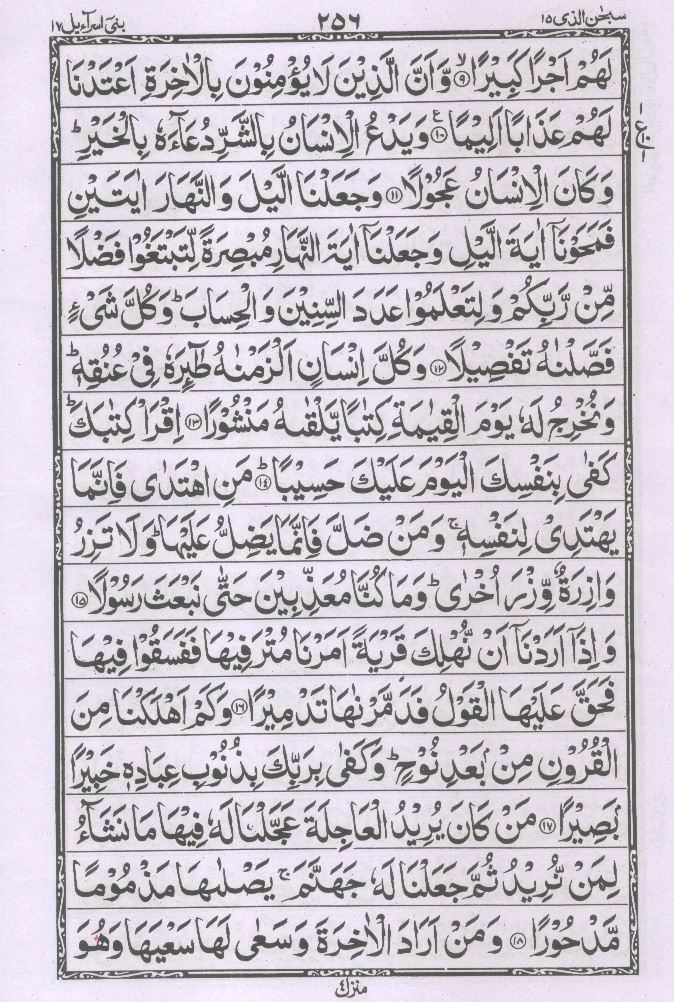 سبحٰن الذی ۱۵ ۲۵۶ بنی اسرآءیل ۱۷
لَهُمْ اَجْرًا كَبِیْرًاۙ۝۹ وَّاَنَّ الَّذِیْنَ لَا یُؤْمِنُوْنَ بِالْاٰخِرَةِ اَعْتَدْنَا
لَهُمْ عَذَابًا اَلِیْمًا۠۝۱۰ وَیَدْعُ الْاِنْسَانُ بِالشَّرِّ دُعَآءَهٗ بِالْخَیْرِؕ
وَكَانَ الْاِنْسَانُ عَجُوْلًا۝۱۱ وَجَعَلْنَا الَّیْلَ وَالنَّهَارَ اٰیَتَیْنِ
فَمَحَوْنَاۤ اٰیَةَ الَّیْلِ وَجَعَلْنَاۤ اٰیَةَ النَّهَارِ مُبْصِرَةً لِّتَبْتَغُوْا فَضْلًا
مِّنْ رَّبِّكُمْ وَلِتَعْلَمُوْا عَدَدَ السِّنِیْنَ وَالْحِسَابَؕ وَكُلَّ شَیْءٍ
فَصَّلْنٰهُ تَفْصِیْلًا۝۱۲ وَكُلَّ اِنْسَانٍ اَلْزَمْنٰهُ طٰٓىِٕرَهٗ فِیْ عُنُقِهٖؕ
وَنُخْرِجُ لَهٗ یَوْمَ الْقِیٰمَةِ كِتٰبًا یَّلْقٰىهُ مَنْشُوْرًا۝۱۳ اِقْرَاْ كِتٰبَكَؕ
كَفٰی بِنَفْسِكَ الْیَوْمَ عَلَیْكَ حَسِیْبًاؕ۝۱۴ مَنِ اهْتَدٰی فَاِنَّمَا
یَهْتَدِیْ لِنَفْسِهٖۚ وَمَنْ ضَلَّ فَاِنَّمَا یَضِلُّ عَلَیْهَاؕ وَلَا تَزِرُ
وَازِرَةٌ وِّزْرَ اُخْرٰیؕ وَمَا كُنَّا مُعَذِّبِیْنَ حَتّٰی نَبْعَثَ رَسُوْلًا۝۱۵
وَاِذَاۤ اَرَدْنَاۤ اَنْ نُّهْلِكَ قَرْیَةً اَمَرْنَا مُتْرَفِیْهَا فَفَسَقُوْا فِیْهَا
فَحَقَّ عَلَیْهَا الْقَوْلُ فَدَمَّرْنٰهَا تَدْمِیْرًا۝۱۶ وَكَمْ اَهْلَكْنَا مِنَ
الْقُرُوْنِ مِنْۢ بَعْدِ نُوْحٍؕ وَكَفٰی بِرَبِّكَ بِذُنُوْبِ عِبَادِهٖ خَبِیْرًۢا
بَصِیْرًا۝۱۷ مَنْ كَانَ یُرِیْدُ الْعَاجِلَةَ عَجَّلْنَا لَهٗ فِیْهَا مَا نَشَآءُ
لِمَنْ نُّرِیْدُ ثُمَّ جَعَلْنَا لَهٗ جَهَنَّمَۚ یَصْلٰىهَا مَذْمُوْمًا
مَّدْحُوْرًا۝۱۸ وَمَنْ اَرَادَ الْاٰخِرَةَ وَسَعٰی لَهَا سَعْیَهَا وَهُوَ
منزل۴